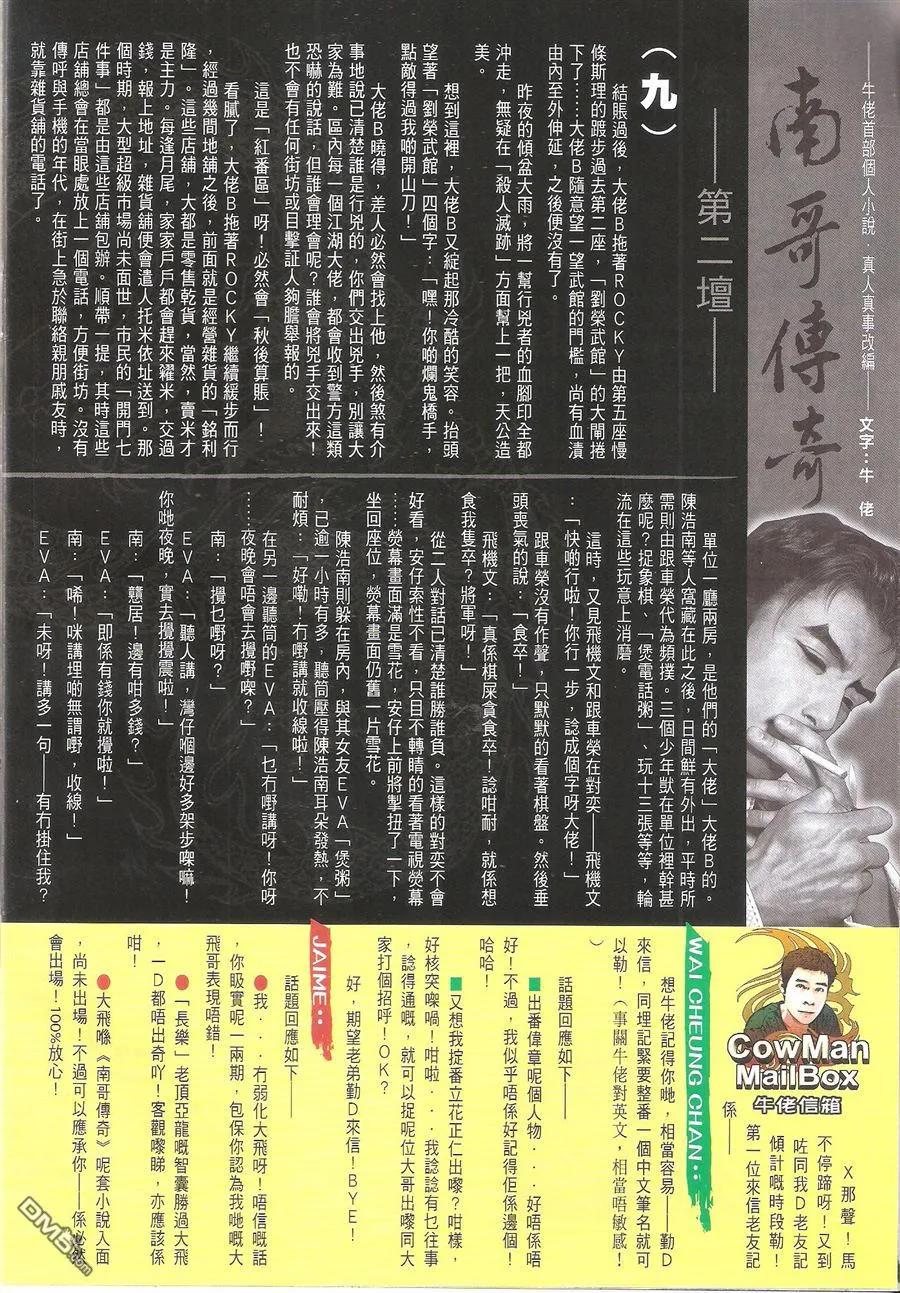 ——牛佬首部個人小說　真人真事改編——文字：牛　佬
南哥傳奇
——第二壇——
（九）
結賬過後，大佬B拖著ROCKY由第五座慢
條斯理的踱步過去第二座，「劉榮武館」的大閘捲
下了⋯⋯大佬B隨意望一望武館的門檻，尚有血漬
由內至外伸延，之後便沒有了。
昨夜的傾盆大雨，將一幫行兇者的血腳印全都
沖走，無疑在「殺人滅跡」方面幫上一把，天公造
美。
想到這裡，大佬B又綻起那冷酷的笑容。抬頭
望著「劉榮武館」四個字：「嘿！你啲爛鬼橋手，
點敵得過我啲開山刀！」
大佬B曉得，差人必然會找上他，然後煞有介
事地說已清楚誰是行兇的，你們交出兇手，別讓大
家為難。區內每一個江湖大佬，都會收到警方這類
恐嚇的說話，但誰會理會呢？誰會將兇手交出來！
也不會有任何街坊或目擊証人夠膽舉報的。
這是「紅番區」呀！必然會「秋後算賬」！
看膩了，大佬B拖著ROCKY繼續緩步而行
，經過幾間地舖之後，前面就是經營雜貨的「銘利
隆」。這些店舖，大都是零售乾貨，當然，賣米才
是主力。每逢月尾，家家戶戶都會趕來糴米，交過
錢，報上地址，雜貨舖便會遣人托米依址送到。那
個時期，大型超級市場尚未面世，市民的「開門七
件事」都是由這些店舖包辦。順帶一提，其時這些
店舖總會在當眼處放上一個電話，方便街坊。沒有
傳呼與手機的年代，在街上急於聯絡親朋戚友時，
就靠雜貨舖的電話了。
單位一廳兩房，是他們的「大佬」大佬B的。
陳浩南等人窩藏在此之後，日間鮮有外出，平時所
需則由跟車榮代為頻撲。三個少年獸在單位裡幹甚
麼呢？捉象棋、「煲電話粥」、玩十三張等等，輪
流在這些玩意上消磨。
這時，又見飛機文和跟車榮在對奕——飛機文
：「快啲行啦！你行一步，諗成個字呀大佬！」
跟車榮沒有作聲，只默默的看著棋盤。然後垂
頭喪氣的說：「食卒！」
飛機文：「真係棋屎貪食卒！諗咁耐，就係想
食我隻卒？將軍呀！」
從二人對話已清楚誰勝誰負。這樣的對奕不會
好看，安仔索性不看，只目不轉睛的看著電視熒幕
⋯⋯熒幕畫面滿是雪花，安仔上前將掣扭了一下，
坐回座位，熒幕畫面仍舊一片雪花。
陳浩南則躲在房內，與其女友EVA「煲粥」
，已逾一小時有多，聽筒壓得陳浩南耳朵發熱，不
耐煩：「好嘞！冇嘢講就收線啦！」
在另一邊聽筒的EVA：「乜冇嘢講呀！你呀
⋯⋯夜晚會唔會去攪嘢㗎？」
南：「攪乜嘢呀？」
EVA：「聽人講，灣仔嗰邊好多架步㗎嘛！
你哋夜晚，實去攪攪震啦！」
南：「戇居！邊有咁多錢？」
EVA：「即係有錢你就攪啦！」
南：「唏！咪講埋啲無謂嘢，收線！」
EVA：「未呀！講多一句——有冇掛住我？
CowMan
MailBox
牛佬信箱
X那聲！馬
不停蹄呀！又到
咗同我D老友記
傾計嘅時段勒！
第一位來信老友記
係——
WAI CHEUNG CHAN：
想牛佬記得你哋，相當容易——勤D
來信，同埋記緊要整番一個中文筆名就可
以勒！（事關牛佬對英文，相當唔敏感！
）
話題回應如下——
■出番偉章呢個人物．．好唔係唔
好！不過，我似乎唔係好記得佢係邊個！
哈哈！
■又想我掟番立花正仁出嚟？咁樣，
好核突㗎喎！咁啦．．我諗諗有乜往事
，諗得通嘅，就可以捉呢位大哥出嚟同大
家打個招呼！OK？
好，期望老弟勤D來信！BYE！
JAIME：
話題回應如下——
●我．．．冇弱化大飛呀！唔信嘅話
，你吸實呢一兩期，包保你認為我哋嘅大
飛哥表現唔錯！
●「長樂」老頂亞龍嘅智囊勝過大飛
，一D都唔出奇吖！客觀嚟睇，亦應該係
咁！
●大飛喺《南哥傳奇》呢套小說入面
，尚未出場！不過可以應承你——係必然
會出場！100%放心！
DM5.com